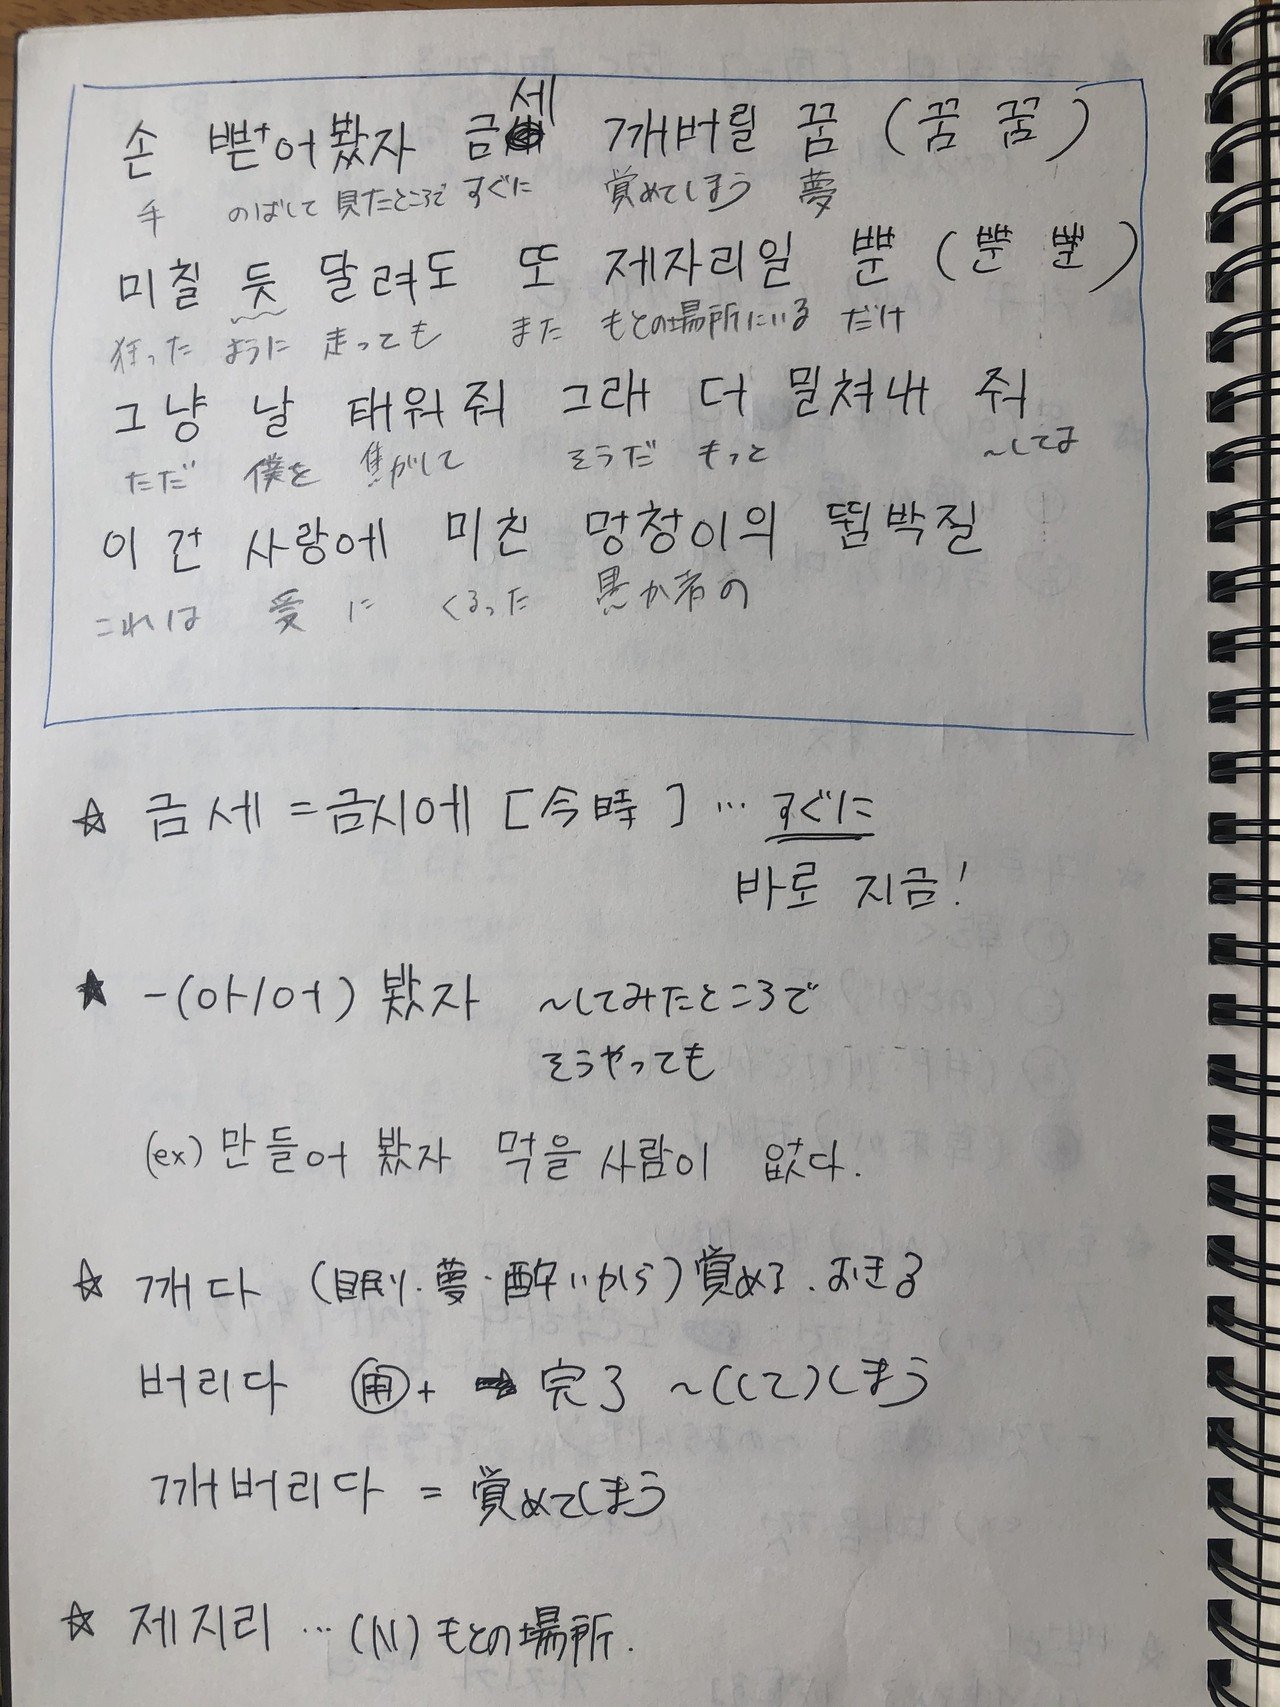 손 뻗어봤자 금세 깨버릴 꿈 (꿈 꿈)
手 のばして 見たところで すぐに 覚めてしまう 夢
미칠 듯 달려도 또 제자리일 뿐 (뿐 뿐)
狂った ように 走っても また もとの場所にいる だけ
그냥 날 태워줘 그래 더 밀쳐내 줘
ただ 僕を 焦がして そうだ もっと 〜してよ
이건 사랑에 미친 멍청이의 뜀박질
これは 愛 に くるった 愚か者の
☆ 금세 = 금시에 [今時] … すぐに
바로 지금!
★ -(아/어) 봤자 〜してみたところで
そうやっても
(ex) 만들어 봤자 먹을 사람이 없다.
☆ 깨다 (眠り・夢・酔いから) 覚める、おきる
버리다 用+ → 完了 〜(して)しまう
깨버리다 = 覚めてしまう
☆ 제지리 … (N) もとの場所.